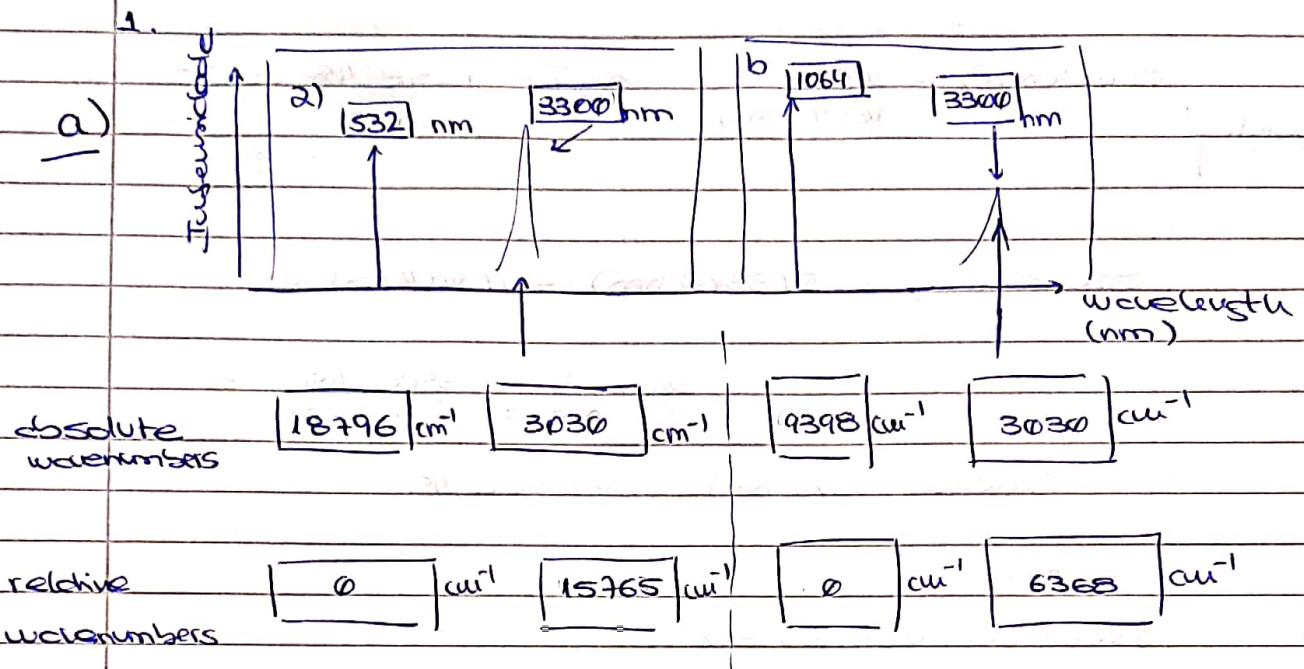 1.
a)
Intensidade
2)
532 nm
3300 nm
b
1064
3300 nm
wavelength
(nm)
absolute
wavenumbers
18796 cm⁻¹
3030 cm⁻¹
9398 cm⁻¹
3030 cm⁻¹
relative
wavenumbers
0 cm⁻¹
15765 cm⁻¹
0 cm⁻¹
6368 cm⁻¹